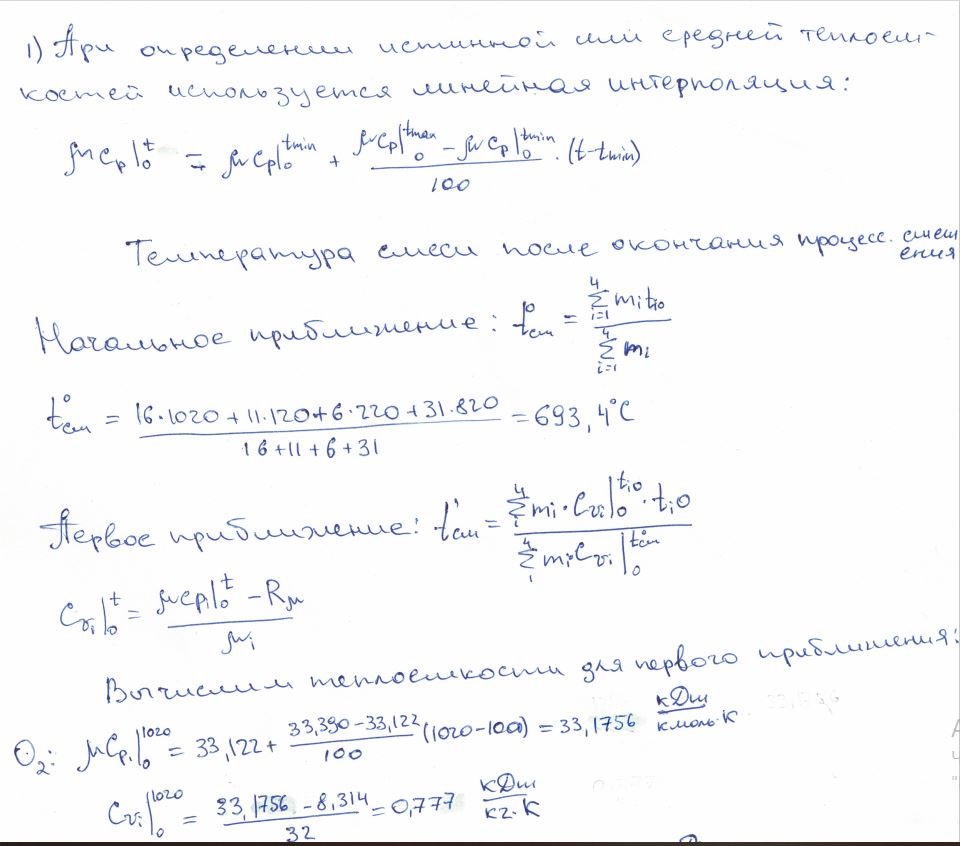 1) При определении истинной или средней теплоем-
костей используется линейная интерполяция:
μcp|₀ᵗ = μcp|₀ᵗᵐⁱⁿ + (μcp|₀ᵗᵐᵃˣ − μcp|₀ᵗᵐⁱⁿ)/100 · (t−tmin)
Температура смеси после окончания процесс. смешения
Начальное приближение: t⁰см = Σ⁴ᵢ₌₁ mᵢtᵢ₀ / Σ⁴ᵢ₌₁ mᵢ
t⁰см = (16·1020+11·120+6·220+31·820)/(16+11+6+31) = 693,4°C
Первое приближение: t'см = Σ⁴ᵢ mᵢ·Cvᵢ|₀ᵗⁱ⁰·tᵢ₀ / Σ⁴₁ mᵢCvᵢ|₀ᵗᶜᵐ
Cvᵢ|₀ᵗ = (μcpᵢ|₀ᵗ − Rμ)/μᵢ
Вычислим теплоемкости для первого приближения:
O₂: μCp₁|₀¹⁰²⁰ = 33,122+ (33,390−33,122)/100 (1020−100) = 33,1756 кДж/кмоль·К
Cvᵢ|₀¹⁰²⁰ = (33,1756 −8,314)/32 = 0,777 кДж/кг·К